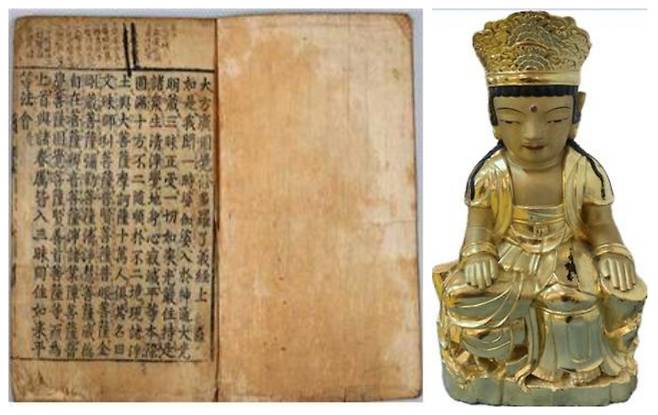 大方廣圓覺修多羅了義經上
如是我聞一時婆伽婆入於神通大光
明藏三昧正受一切如來光嚴住持是
諸衆生清淨覺地身心寂滅平等本際
圓滿十方不二隨順於不二境現諸淨
土與大菩薩摩訶薩十萬人俱其名曰
文殊師利菩薩普賢菩薩普眼菩薩金
剛藏菩薩彌勒菩薩清淨慧菩薩威德
自在菩薩辯音菩薩淨諸業障菩薩普
覺菩薩圓覺菩薩賢善首菩薩等而爲
上首與諸眷屬皆入三昧同住如來平
等法會